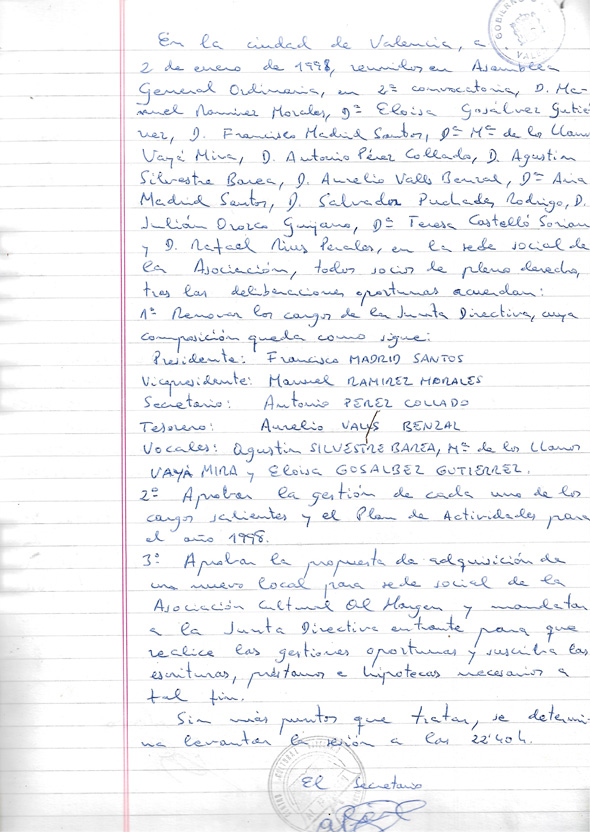 En la ciudad de Valencia, a
2 de enero de 1998, reunidos en Asamblea
General Ordinaria, en 2ª convocatoria, D. Ma-
nuel Ramirez Morales, Dª Eloisa Gosálvez Gutié
rrez, D. Francisco Madrid Santos, Dª Mª de los Llanos
Vayá Mira, D. Antonio Pérez Collado, D. Agustin
Silvestre Barea, D. Aurelio Valls Benzal, Dª Ana
Madrid Santos, D. Salvador Puchades Rodrigo, D.
Julián Orozco Guijano, Dª Teresa Castelló Soriano
y D. Rafael Rius Perales, en la sede social de
la Asociación, todos socios de pleno derecho,
tras las deliberaciones oportunas acuerdan:
1º Renovar los cargos de la Junta Directiva, cuya
composición queda como sigue:
Presidente: Francisco MADRID SANTOS
Vicepresidente: Manuel RAMIREZ MORALES
Secretario: Antonio PÉREZ COLLADO
Tesorero: Aurelio VALLS BENZAL
Vocales: Agustin SILVESTRE BAREA, Mª de los Llanos
VAYÁ MIRA y Eloisa GOSALBEZ GUTIERREZ.
2º Aprobar la gestión de cada uno de los
cargos salientes y el Plan de Actividades para
el año 1998.
3º Aprobar la propuesta de adquisición de
un nuevo local para sede social de la
Asociación Cultural Al Margen y mandatar
a la Junta Directiva entrante para que
realice las gestiones oportunas y suscriba las
escrituras, préstamos e hipotecas necesarios a
tal fin.
Sin más puntos que tratar, se determi-
na levantar la sesión a las 22'40 h.
El Secretario